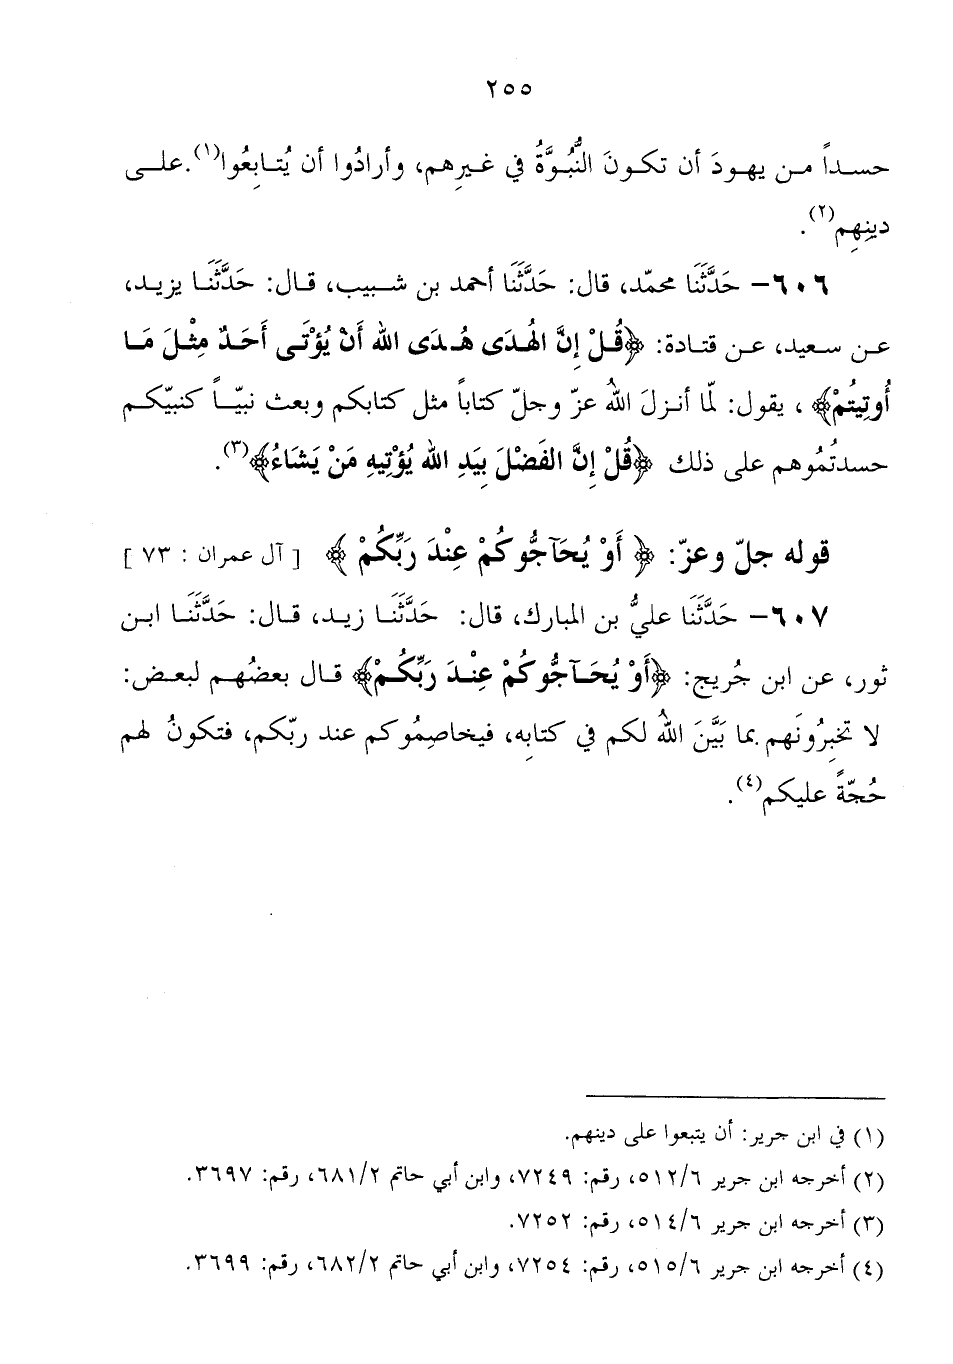 ٢٥٥
حسـداً مـن يهـودَ أن تكـونَ النُّبُـوَّةُ في غـيرِهم، وأرادُوا أن يُتـابِعُوا(١).علـى
دينِهِم(٢).
٦٠٦– حَدَّثَنَا محمّد، قال: حَدَّثَنَا أحمد بن شـبيب، قـال: حَدَّثَنَـا يزيـد،
عـن سـعيد، عـن قتـادة: ﴿قُـلْ إِنَّ الهُـدَى هُـدَى الله أَنْ يُؤْتَـى أَحَـدٌ مِثْـلَ مَـا
أُوتِيتُمْ﴾ ، يقول: لمّا أنـزلَ اللهُ عزّ وجلّ كتاباً مثل كتابكم وبعث نبيّـاً كنبيّكـم
حسدتُمُوهم على ذلك ﴿قُلْ إِنَّ الفَضْلَ بِيَدِ الله يُؤْتِيهِ مَنْ يَشَاءُ﴾(٣).
قوله جلّ وعزّ: ﴿ أَوْ يُحَآجُّوكُمْ عِنْدَ رَبِّكُمْ ﴾ [ آل عمران : ٧٣ ]
٦٠٧– حَدَّثَنَا عليُّ بن المبارك، قال: حَدَّثَنَـا زيـد، قـال: حَدَّثَنَـا ابـن
ثور، عن ابن جُريج: ﴿أَوْ يُحَـآجُّوكُمْ عِنْـدَ رَبِّكُـمْ﴾ قـال بعضُهـم لبعـض:
لا تخبِرُونَهم بما بَيَّنَ اللهُ لكم في كتابِه، فيخاصِمُوكم عند ربّكم، فتكونُ لهم
حُجّةً عليكم(٤).
(١) في ابن جرير: أن يتبعوا على دينهم.
(٢) أخرجه ابن جرير ٥١٢/٦، رقم: ٧٢٤٩، وابن أبي حاتم ٦٨١/٢، رقم: ٣٦٩٧.
(٣) أخرجه ابن جرير ٥١٤/٦، رقم: ٧٢٥٢.
(٤) أخرجه ابن جرير ٥١٥/٦، رقم: ٧٢٥٤، وابن أبي حاتم ٦٨٢/٢، رقم: ٣٦٩٩.